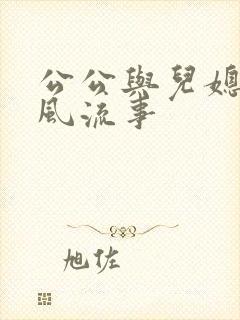 公公與兒媳
風流事
旭佐